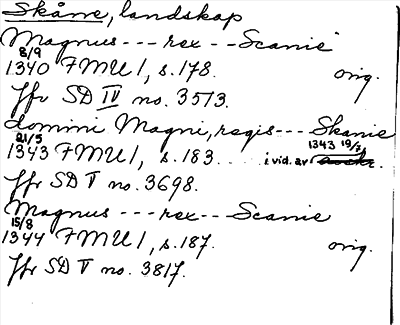 Skåne, landskap
Magnus --- rex -- Scanie
8/9
1340 FMU 1, s. 178. orig.
Jfr SD IV no. 3513.
domini Magni, regis --- Skanie
21/5 1343 19/7
1343 FMU 1, s. 183. . . . i vid. av
Jfr SD V no. 3698.
Magnus --- rex -- Scanie
15/8
1344 FMU 1, s. 187. orig.
Jfr SD V no. 3817.